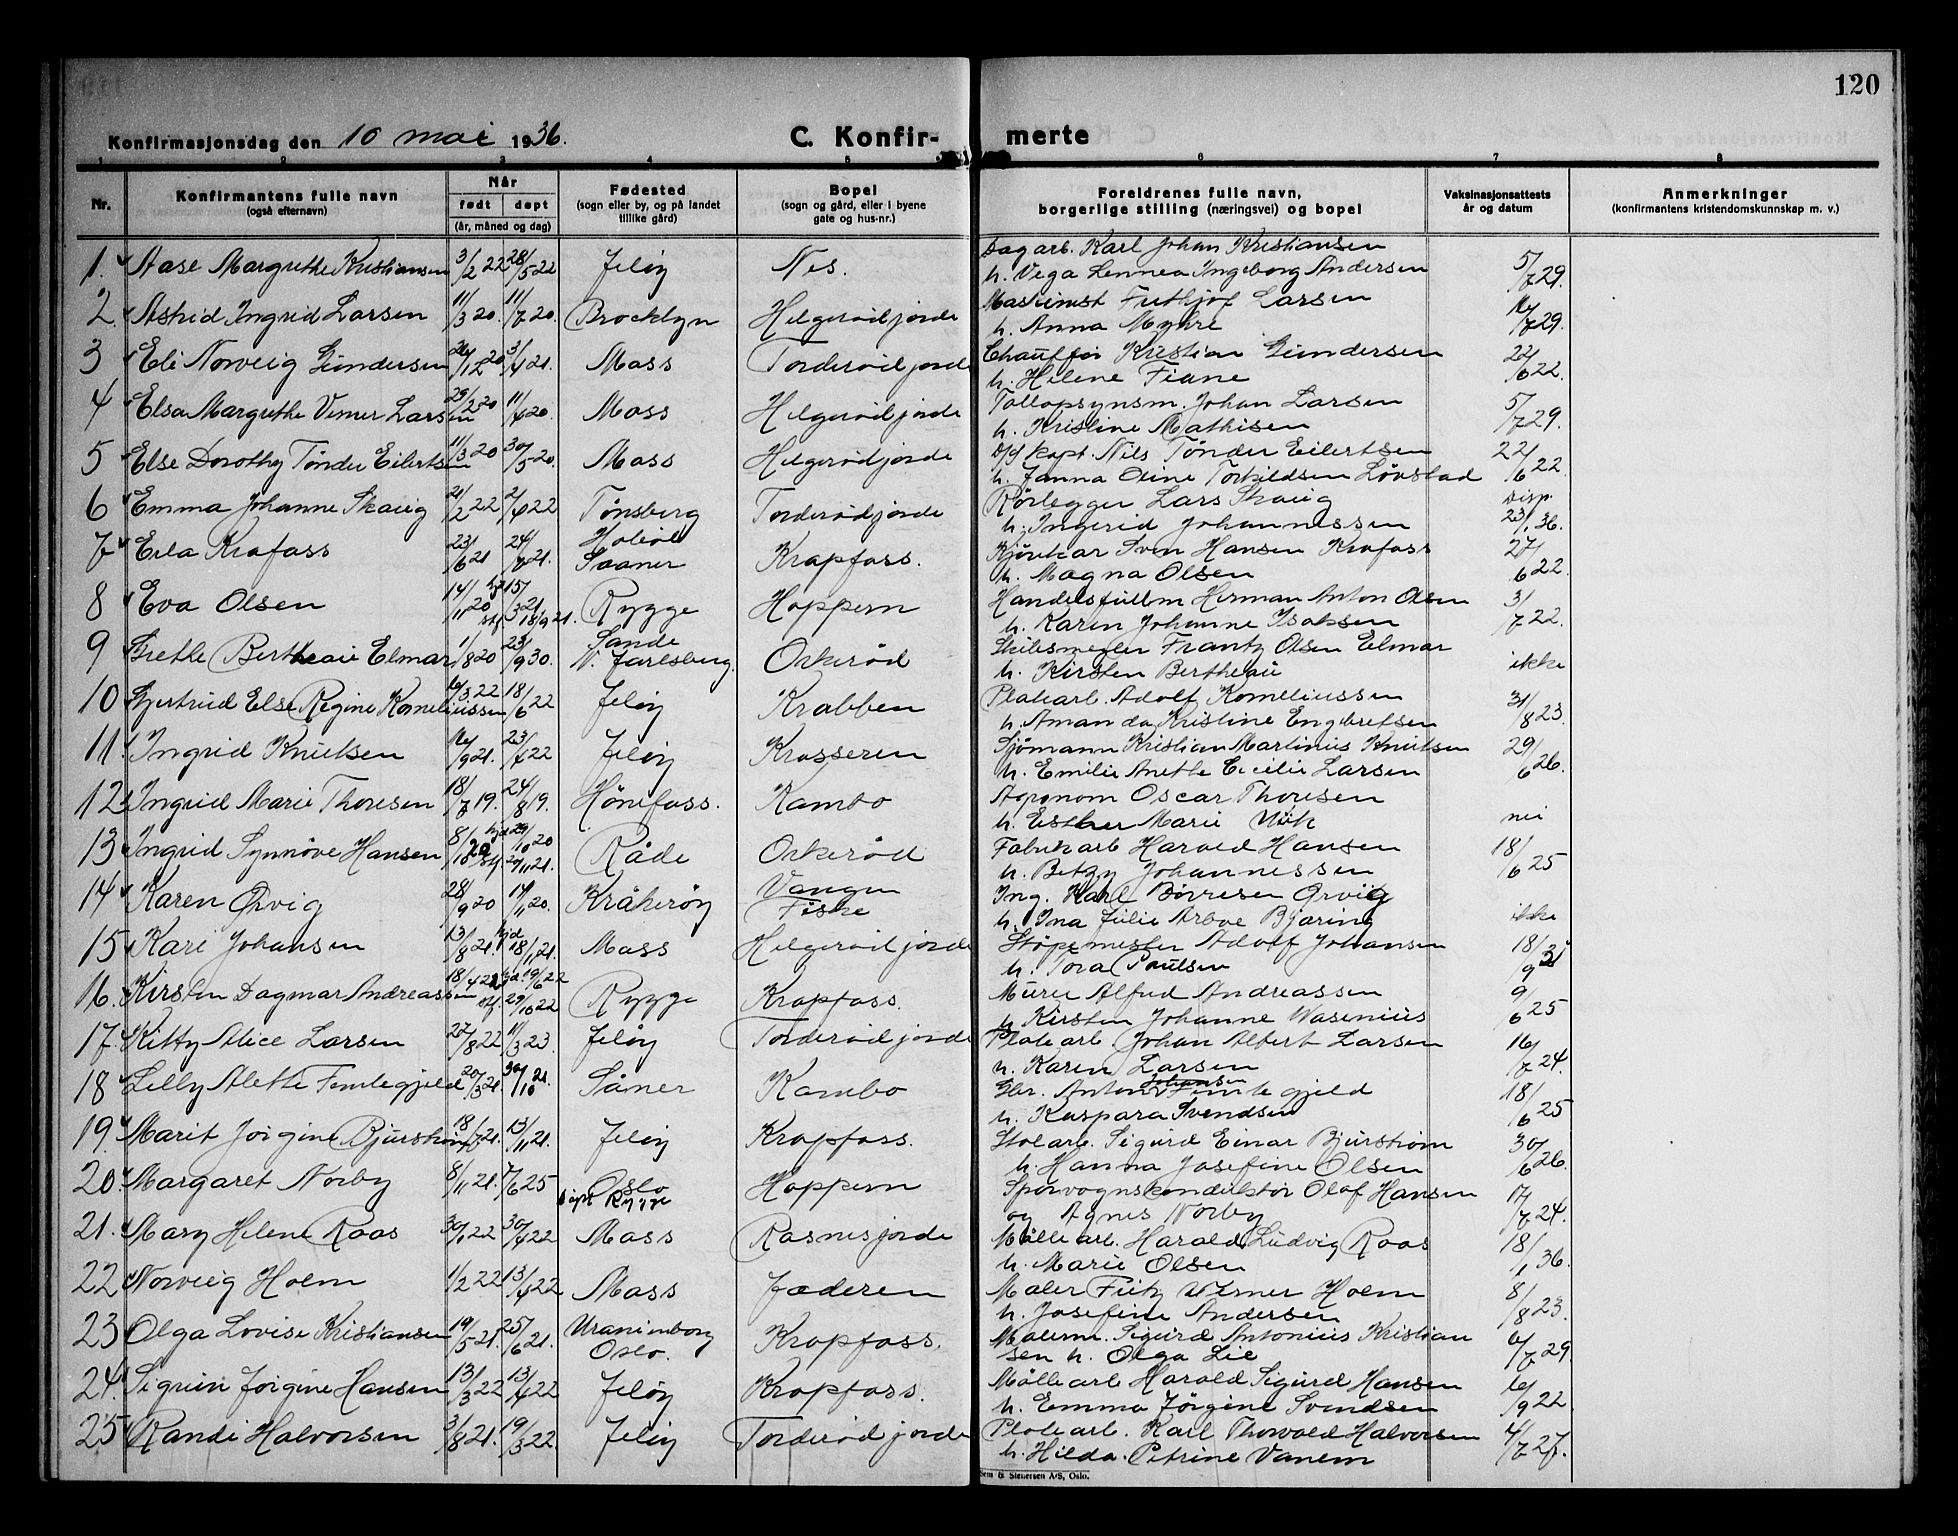 120
Konfirmasjonsdag den 10 mai 1936. C. Konfir- merte
1 2 3 4 5 6 7 8
Nr. Konfirmantens fulle navn (også efternavn) Når født døpt (år, måned og dag) Fødested (sogn eller by, og på landet tillike gård) Bopel (sogn og gård, eller i byene gate og hus-nr.) Foreldrenes fulle navn, borgerlige stilling (næringsvei) og bopel Vaksinasjonsattests år og datum Anmerkninger (konfirmantens kristendomskunnskap m. v.)
1. Aase Margrethe Kristiansen 3/2 22 28/5 22 Jeløy Nes. Dagarb. Karl Johan Kristiansen
h. Vega Lennea Ingeborg Andersen 5/7 29.
2. Astrid Ingrid Larsen 11/3 20. 11/7 20. Brocklyn Helgerødjorde Maskinist Frithjof Larsen
h. Anna Myhre
3 Eli Norveig Gundersen Moss Torderødjorde Chauffør Kristian Gundersen 22/6 22.
h. Helene Fiane
4 Elsa Margrethe Verner Larsen 29/2 20 11/4 20. Moss Helgerødjorde Tollopsynsm. Johan Larsen 5/7 29.
h. Kristine Mathisen
5 Else Dorothy Tönder Eilertsen 11/3 20 30/5 20. Moss Helgerødjorde D/S kapt. Nils Tönder Eilertsen 22/6 22.
h. Janna Oline Torkildsen Lövstad
6 Emma Johanne Skaug 21/2 22 2/4 22 Tønsberg Torderødjorde Rörlegger Lars Skaug disp. 23/1 36.
h. Ingerid Johannessen
7 Erla Krafoss 23/6 21 24/7 21. Hobøl Saaner Krapfoss. Kjørekar Sven Hansen Krafoss 27/6 22.
h. Magna Olsen
8 Eva Olsen 14/11 20 hjd 15/3 21. stf. 18/9 21. Rygge Hoppern Handelsfullm Herman Anton Olsen 3/7 22.
h. Karen Johanne Isaksen
9 Grethe Bertheau Elmar 1/8 20 23/9 30. Sande N. Jarlsberg. Orkerød Skibsmegler Frantz Olsen Elmar ikke
h. Kirsten Bertheau
10 Gjertrud Else Regine Korneliussen 18/6 22 Jeløy Krabben Platearb. Adolf Korneliussen 31/8 23.
h. Amanda Kristine Engebretsen
11. Ingrid Knutsen 23/7 22 Jeløy Krosseren Sjømann Kristian Martinius Knutsen 29/6 26.
h. Emilie Anette Cecilie Larsen
12 Ingrid Marie Thoresen 18/7 19. 24/8 19. Hönefoss. Kambo Agronom Oscar Thoresen
h. Esther Marie nei
13 Ingrid Synnøve Hansen 8/10 20 hjd 29/10 20 stf. 20/11 21. Råde Orkerød Fabrikarb Harald Hansen 18/6 25
h. Betzy Johannessen
14 Karen Ørvig 28/9 20 14/11 20. Kråkerøy Vangen Fiske Ing. Karl Børresen Ørvig
h. Ina Julie Arboe Bjøring ikke
15 Kari Johansen 13/8 21. hjd 18/11 21. Moss Helgerødjorde Støpemester Adolf Johansen 18/9 31
h. Tora Paulsen
16. Kirsten Dagmar Andreassen 18/4 22 hjd. 19/6 22 stf. 29/10 22 Rygge Krapfoss. Murer Alfred Andreassen 9/6 25
h. Kirsten Johanne Wasenius
17. Kitty Alice Larsen 27/8 22 11/3 23. Jeløy Torderødjorde Platearb. Johan Albert Larsen 16/7 24.
h. Karen Larsen
18 Lilly Alette Femtegjeld 20/3 21. 30/10 21. Såner Kambo Gbr. Anton Johansen Femtegjeld 18/6 25
h. Kaspara Svendsen
19. Marit Jørgine Bjurstrøm 18/7 21. 13/11 21. Jeløy Krapfoss. Stolarb. Sigurd Einar Bjurstrøm 30/6 26.
h. Hanna Josefine Olsen
20. Margaret Norby 8/11 21. 7/6 25 Oslo døpt Rygge Hoppern Sporvognskonduktør Olaf Hansen 17/7 24.
og Agnes Norby
21. Mary Helene Roos 30/1 22 30/4 22 Moss Rosnesjorde Möllearb. Harald Ludvig Roos 18/1 36.
h. Marie Olsen
22 Norveig Holm 1/2 22 13/4 22 Moss Jæderen Maler Fritz Werner Holm 8/8 23.
h. Josefine Andersen
23 Olga Lovise Kristiansen 19/5 21. 25/6 21. Uranienborg Oslo. Krapfoss. Malerm. Sigurd Antonius Kristian
sen h. Olga Lie
24. Sigrun Jørgine Hansen 13/3 22 13/4 22 Jeløy Krapfoss. Möllearb Harald Sigurd Hansen
h. Emma Jørgine Svendsen
25 Randi Halvorsen 3/8 21. 19/3 22. Jeløy Torderødjorde Platearb. Karl Thorvald Halvorsen 4/7 27.
h. Hilda Petrine Vanem
Sem & Stenersen A/S, Oslo.